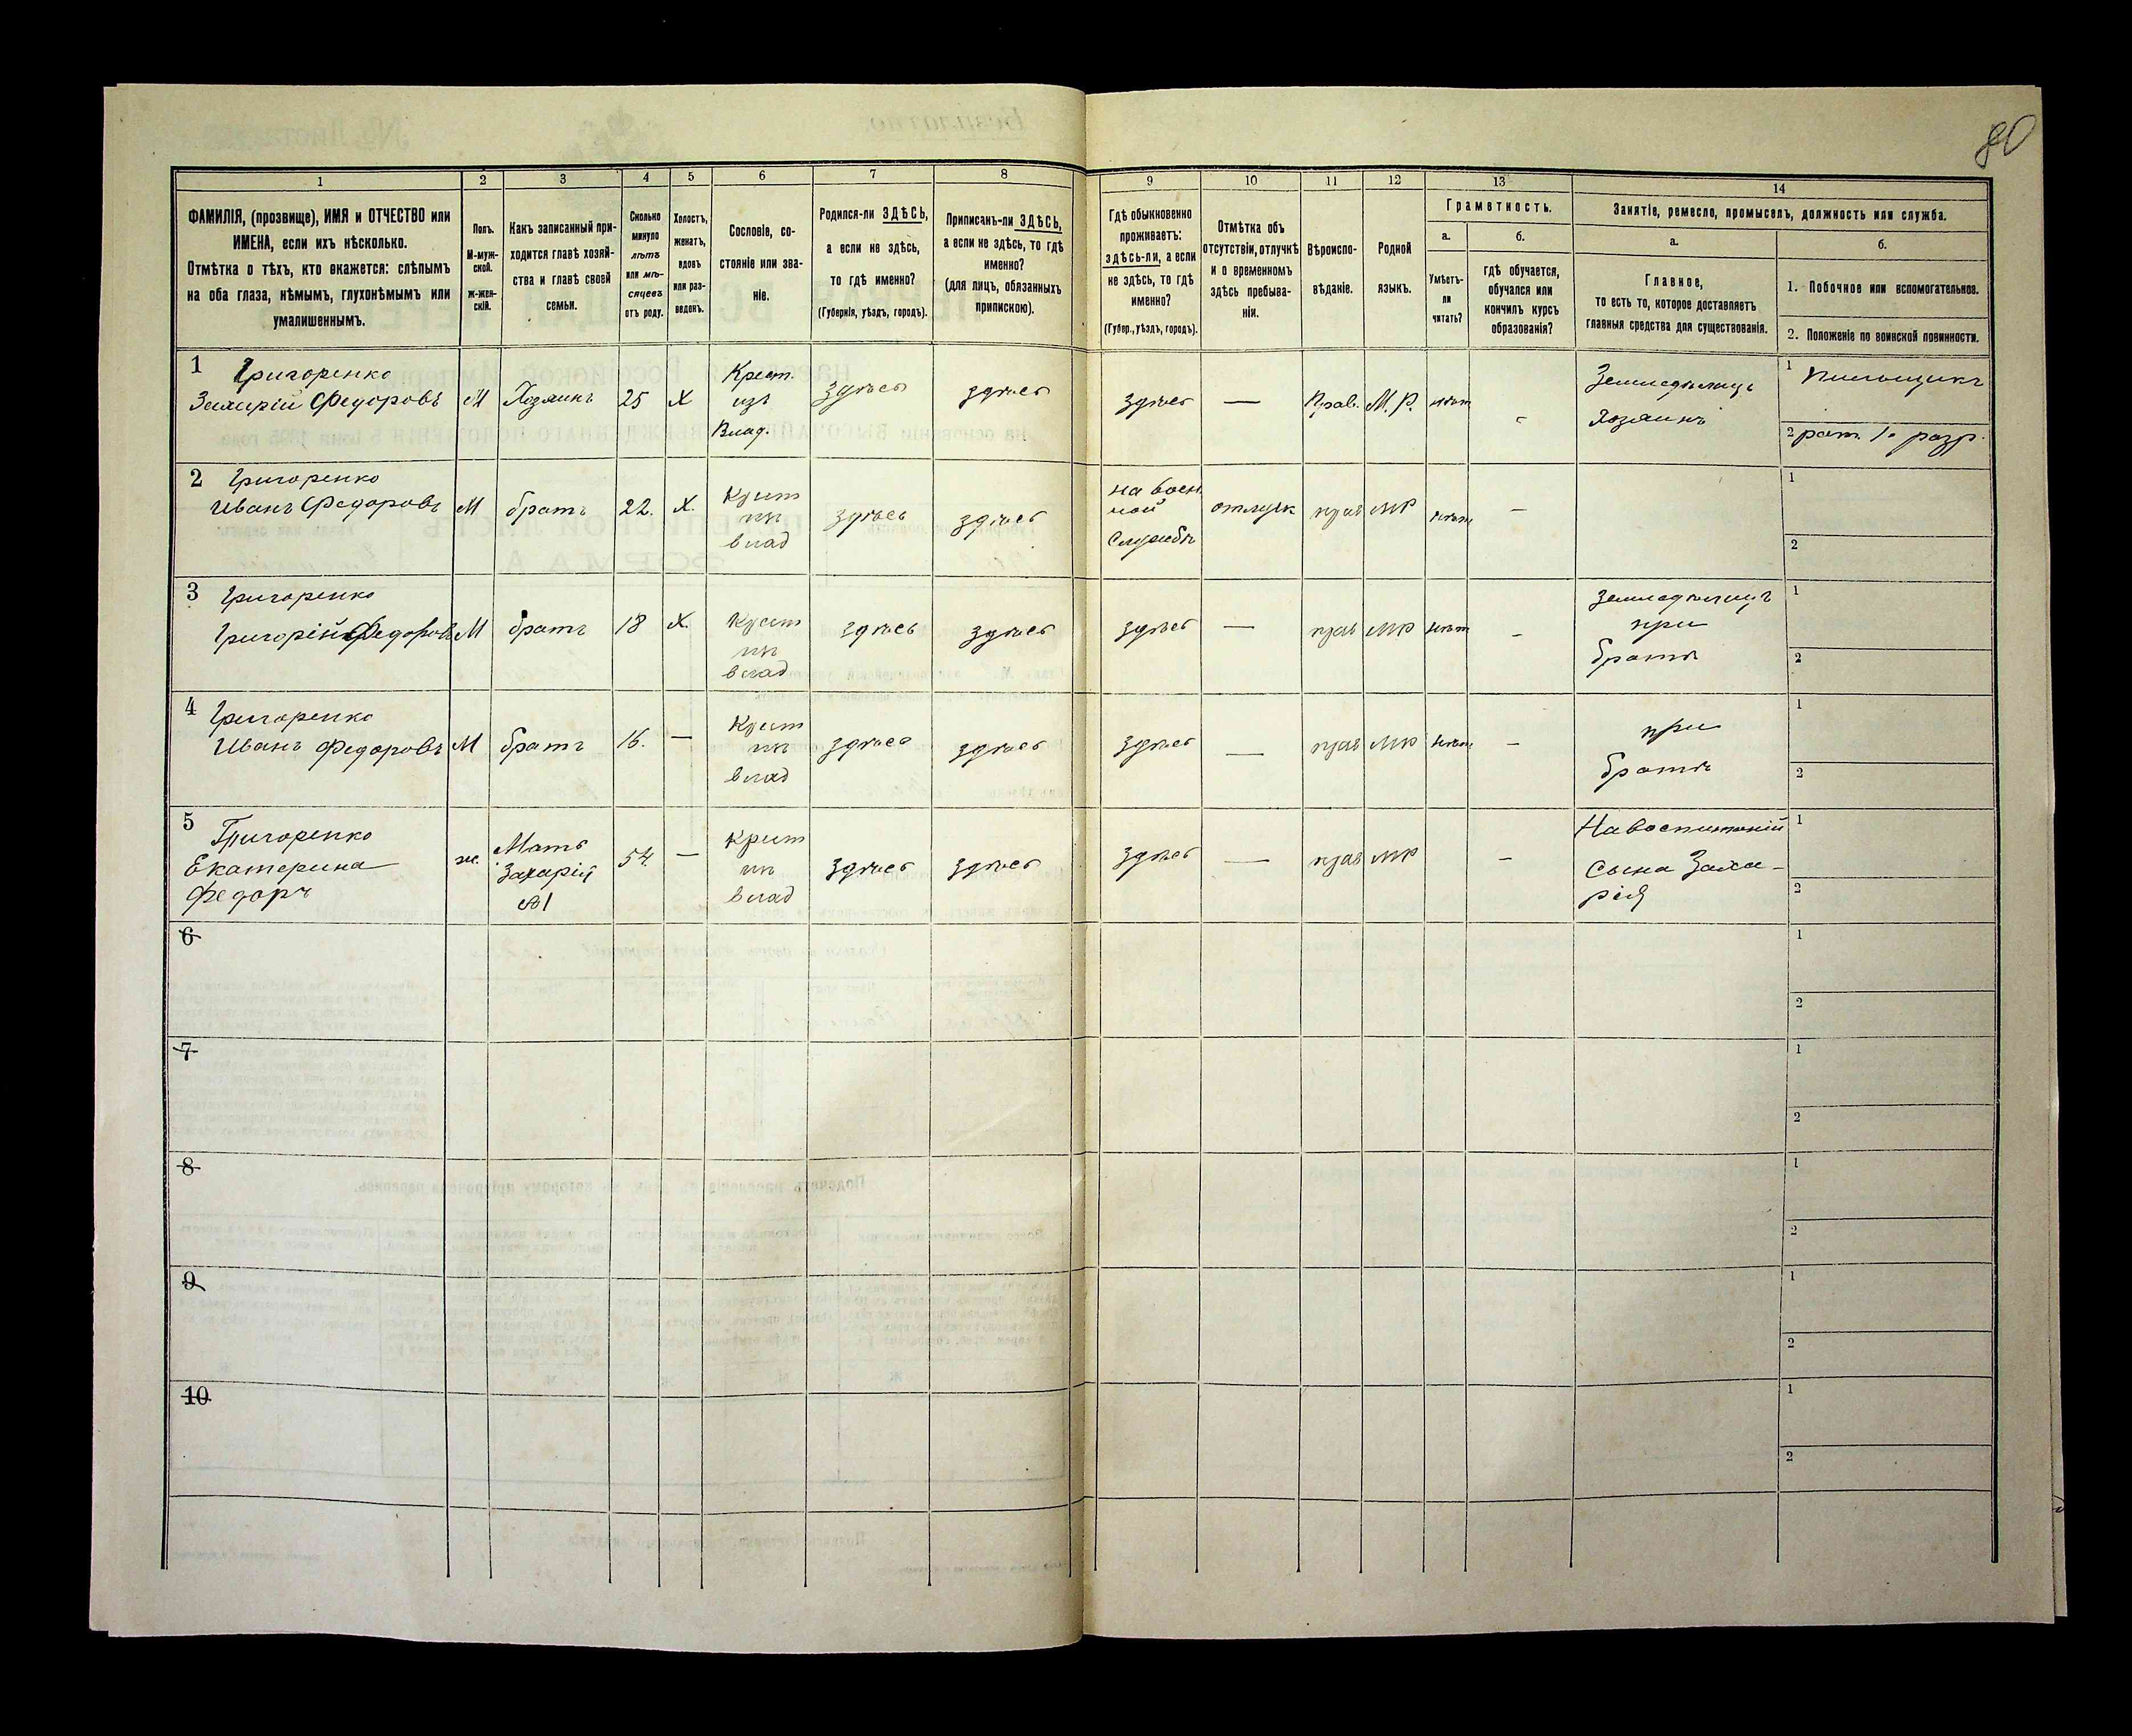 80
1 2 3 4 5 6 7 8 9 10 11 12 13 14
ФАМИЛІЯ, (прозвище), ИМЯ и ОТЧЕСТВО или
ИМЕНА, если ихъ нѣсколько.
Отмѣтка о тѣхъ, кто окажется: слѣпымъ
на оба глаза, нѣмымъ, глухонѣмымъ или
умалишеннымъ.
Полъ.
М-муж-
ской.
ж-жен-
скій.
Какъ записанный при-
ходится главѣ хозяй-
ства и главѣ своей
семьи.
Сколько
минуло
лѣтъ
или мѣ-
сяцевъ
отъ роду.
Холостъ,
женатъ,
вдовъ
или раз-
веденъ.
Сословіе, со-
стояніе или зва-
ніе.
Родился-ли ЗДѢСЬ,
а если не здѣсь,
то гдѣ именно?
(Губернія, уѣздъ, городъ).
Приписанъ-ли ЗДѢСЬ,
а если не здѣсь, то гдѣ
именно?
(для лицъ, обязанныхъ
припискою).
Гдѣ обыкновенно
проживаетъ:
здѣсь-ли, а если
не здѣсь, то гдѣ
именно?
(Губер., уѣздъ, городъ).
Отмѣтка объ
отсутствіи, отлучкѣ
и о временномъ
здѣсь пребыва-
ніи.
Вѣроиспо-
вѣданіе.
Родной
языкъ.
Грамотность.
а.
Умѣетъ-
ли
читать?
б.
гдѣ обучается,
обучался или
кончилъ курсъ
образованія?
Занятіе, ремесло, промыселъ, должность или служба.
а.
Главное,
то есть то, которое доставляетъ
главныя средства для существованія.
б.
1. Побочное или вспомогательное.
2. Положеніе по воинской повинности.
1 Григоренко
Захарій Федоровъ
М
Хозяинъ
25
Х
Крест.
изъ
Влад.
здѣсь
здѣсь
здѣсь
—
Прав.
М.Р.
нѣт
-
Земледѣлецъ
Хозяинъ
1 Пильщикъ
2 рат. 1. разр.
2 Григоренко
Иванъ Федоровъ
М
братъ
22.
Х.
Крест
из
влад
здѣсь
здѣсь
на воен
ной
Службѣ
отлуск
прав
МР
нѣт
—
1
2
3 Григоренко
Григорій Федоровъ
М
братъ
18
Х.
Крест
из
влад
здѣсь
здѣсь
здѣсь
—
прав
МР
нѣт
-
Земледѣлецъ
при
братѣ
1
2
4 Григоренко
Иванъ Федоровъ
М
братъ
16.
—
Крест
из
влад
здѣсь
здѣсь
здѣсь
—
прав
МР
нѣт
—
при
братѣ
1
2
5 Григоренко
Екатерина
Федорч
ж.
Мать
Захарія
№1
54
—
Крест
из
влад
здѣсь
здѣсь
здѣсь
—
прав
МР
—
На воспитаніи
Сына Заха-
рія
1
2
6
1
2
7
1
2
8
1
2
9
1
2
10
1
2